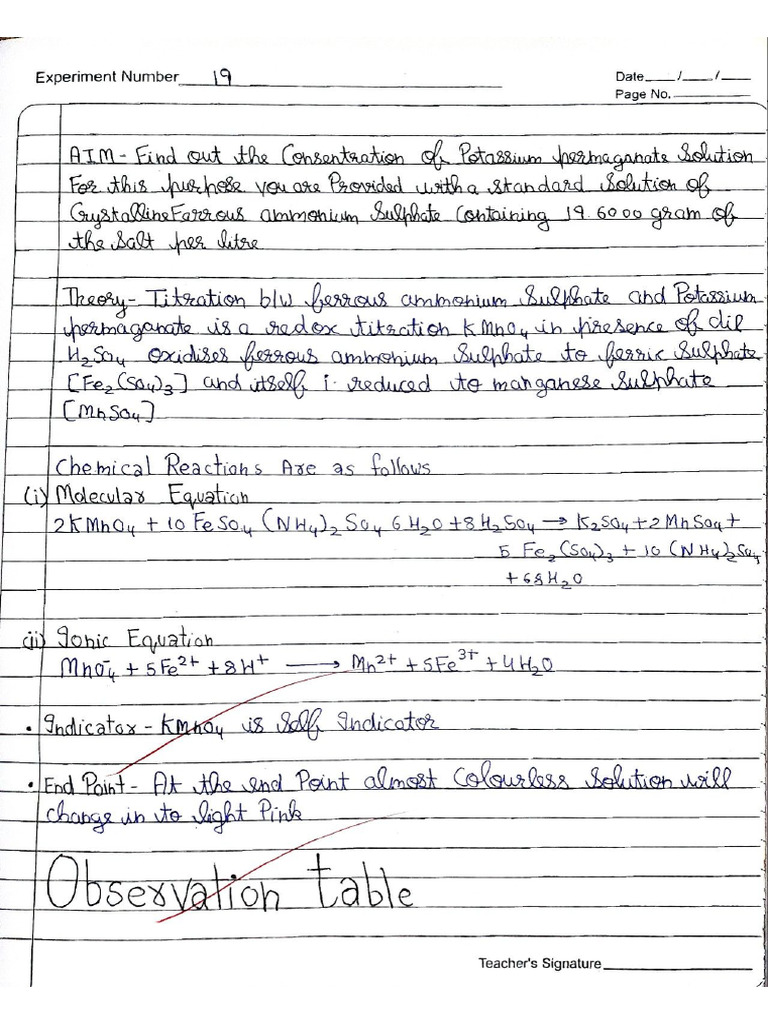 Experiment Number 19
Date / /
Page No.
AIM - Find out the Consentration of Potassium permaganate Solution
For this purpose you are Provided with a standard Solution of
Crystalline Farrous ammonium Sulphate Containing 19.6000 gram of
the Salt per litre
Theory - Titration b/w ferrous ammonium Sulphate and Potassium
permaganate is a redox titration KMnO4 in presence of dil
H2SO4 oxidises ferrous ammonium Sulphate to ferric Sulphate
[Fe2(SO4)3] and itself i. reduced to manganese Sulphate
[MnSO4]
Chemical Reactions Are as follows
(i) Molecular Equation
2KMnO4 + 10 FeSO4 (NH4)2 SO4 6H2O + 8H2SO4 → K2SO4 + 2MnSO4 +
5 Fe2(SO4)3 + 10 (NH4)2SO4
+ 68H2O
(ii) Ionic Equation
MnO4⁻ + 5Fe²⁺ + 8H⁺ ⟶ Mn²⁺ + 5Fe³⁺ + 4H2O
• Indicator - KMnO4 is Self Indicator
• End Point - At the end Point almost Colourless Solution will
change in to light Pink
Observation table
Teacher's Signature